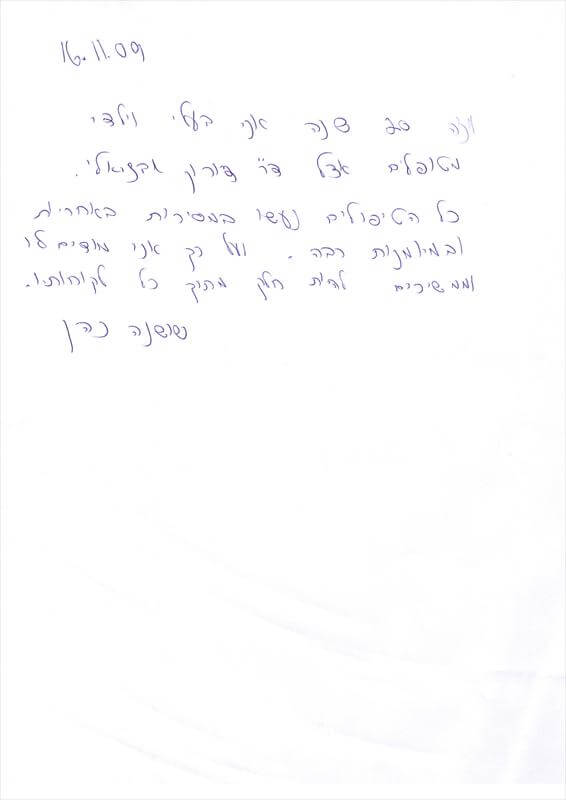 16.11.09
זה 20 שנה אני בעלי וילדי
מטופלים אצל ד"ר דורון אבצואלי.
כל הטיפולים נעשו במסירות באחריות
ובמיומנות רבה. ועל כך אני מודים לו
וממשיכים להיות חלק מתוך כל לקוחותיו.
שושנה כהן